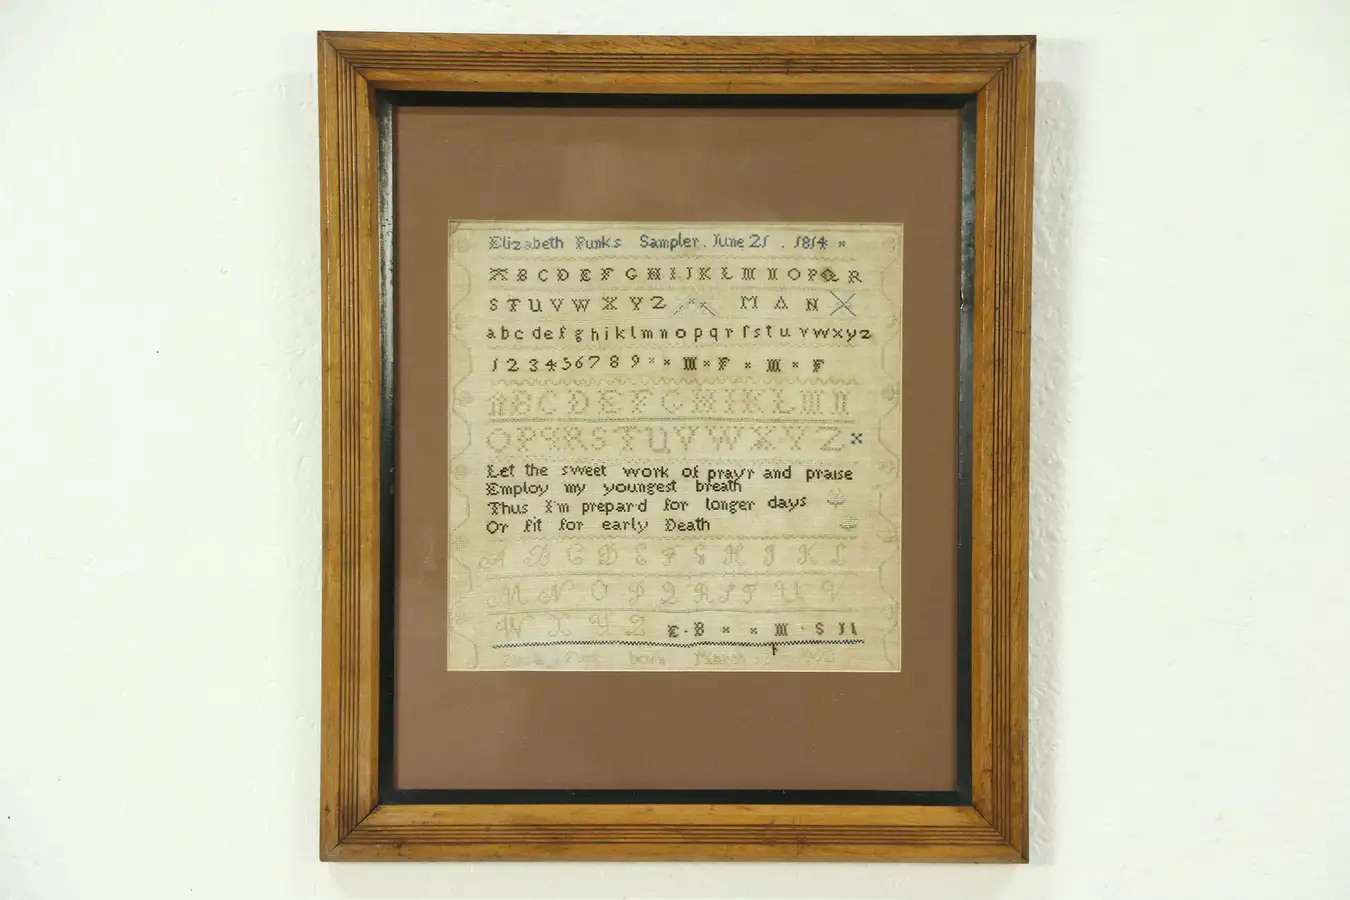 Elizabeth Funks Sampler. June 21. 1814 ×
A B C D E F G H I J K L M N O P Q R
S T U V W X Y Z × × M A N
a b c d e f g h i k l m n o p q r ſ s t u v w x y z
1 2 3 4 5 6 7 8 9 × × M × F × M × F
A B C D E F G H I K L M N
O P Q R S T U V W X Y Z ×
Let the sweet work of prayr and praise
Employ my youngest breath
Thus I'm prepar'd for longer days
Or fit for early Death
A B C D E F G H I K L
M N O P Q R S T U V
W X Y Z E · B × × M · S
born March